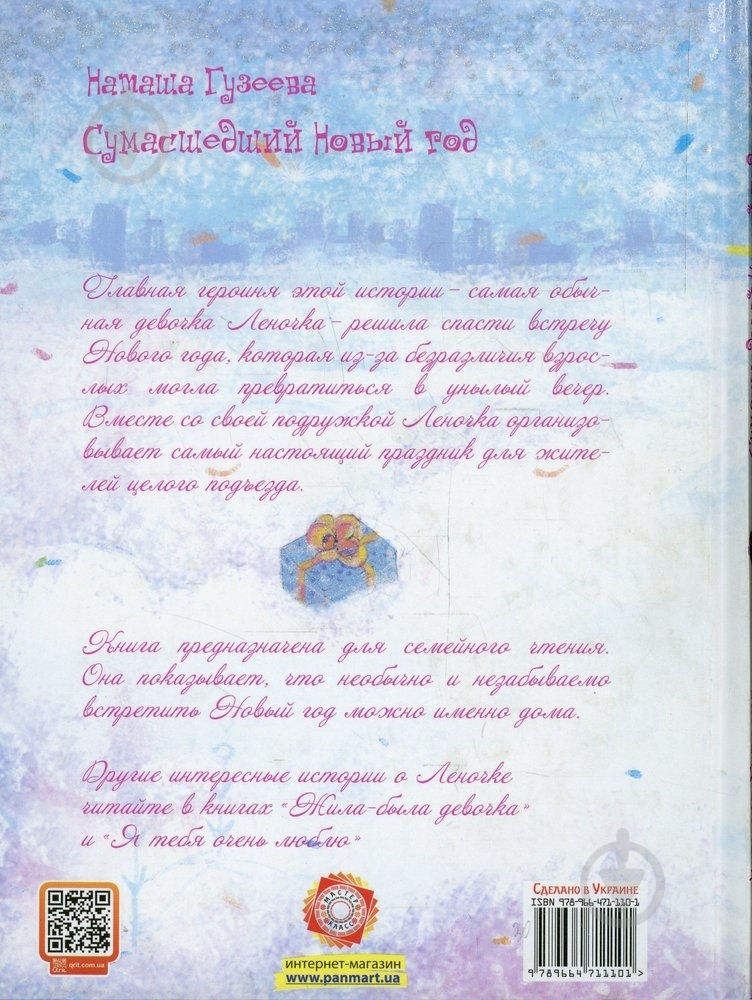 Наташа Гузеева
Сумасшедший Новый год
Главная героиня этой истории – самая обыч-
ная девочка Леночка – решила спасти встречу
Нового года, которая из-за безразличия взрос-
лых могла превратиться в унылый вечер.
Вместе со своей подружкой Леночка организо-
вывает самый настоящий праздник для жите-
лей целого подъезда.
Книга предназначена для семейного чтения.
Она показывает, что необычно и незабываемо
встретить Новый год можно именно дома.
Другие интересные истории о Леночке
читайте в книгах «Жила-была девочка»
и «Я тебя очень люблю»
qrit.com.ua
МАСТЕР
КЛАСС
интернет-магазин
www.panmart.ua
Сделано в Украине
ISBN 978-966-471-110-1
9 789664 711101 >